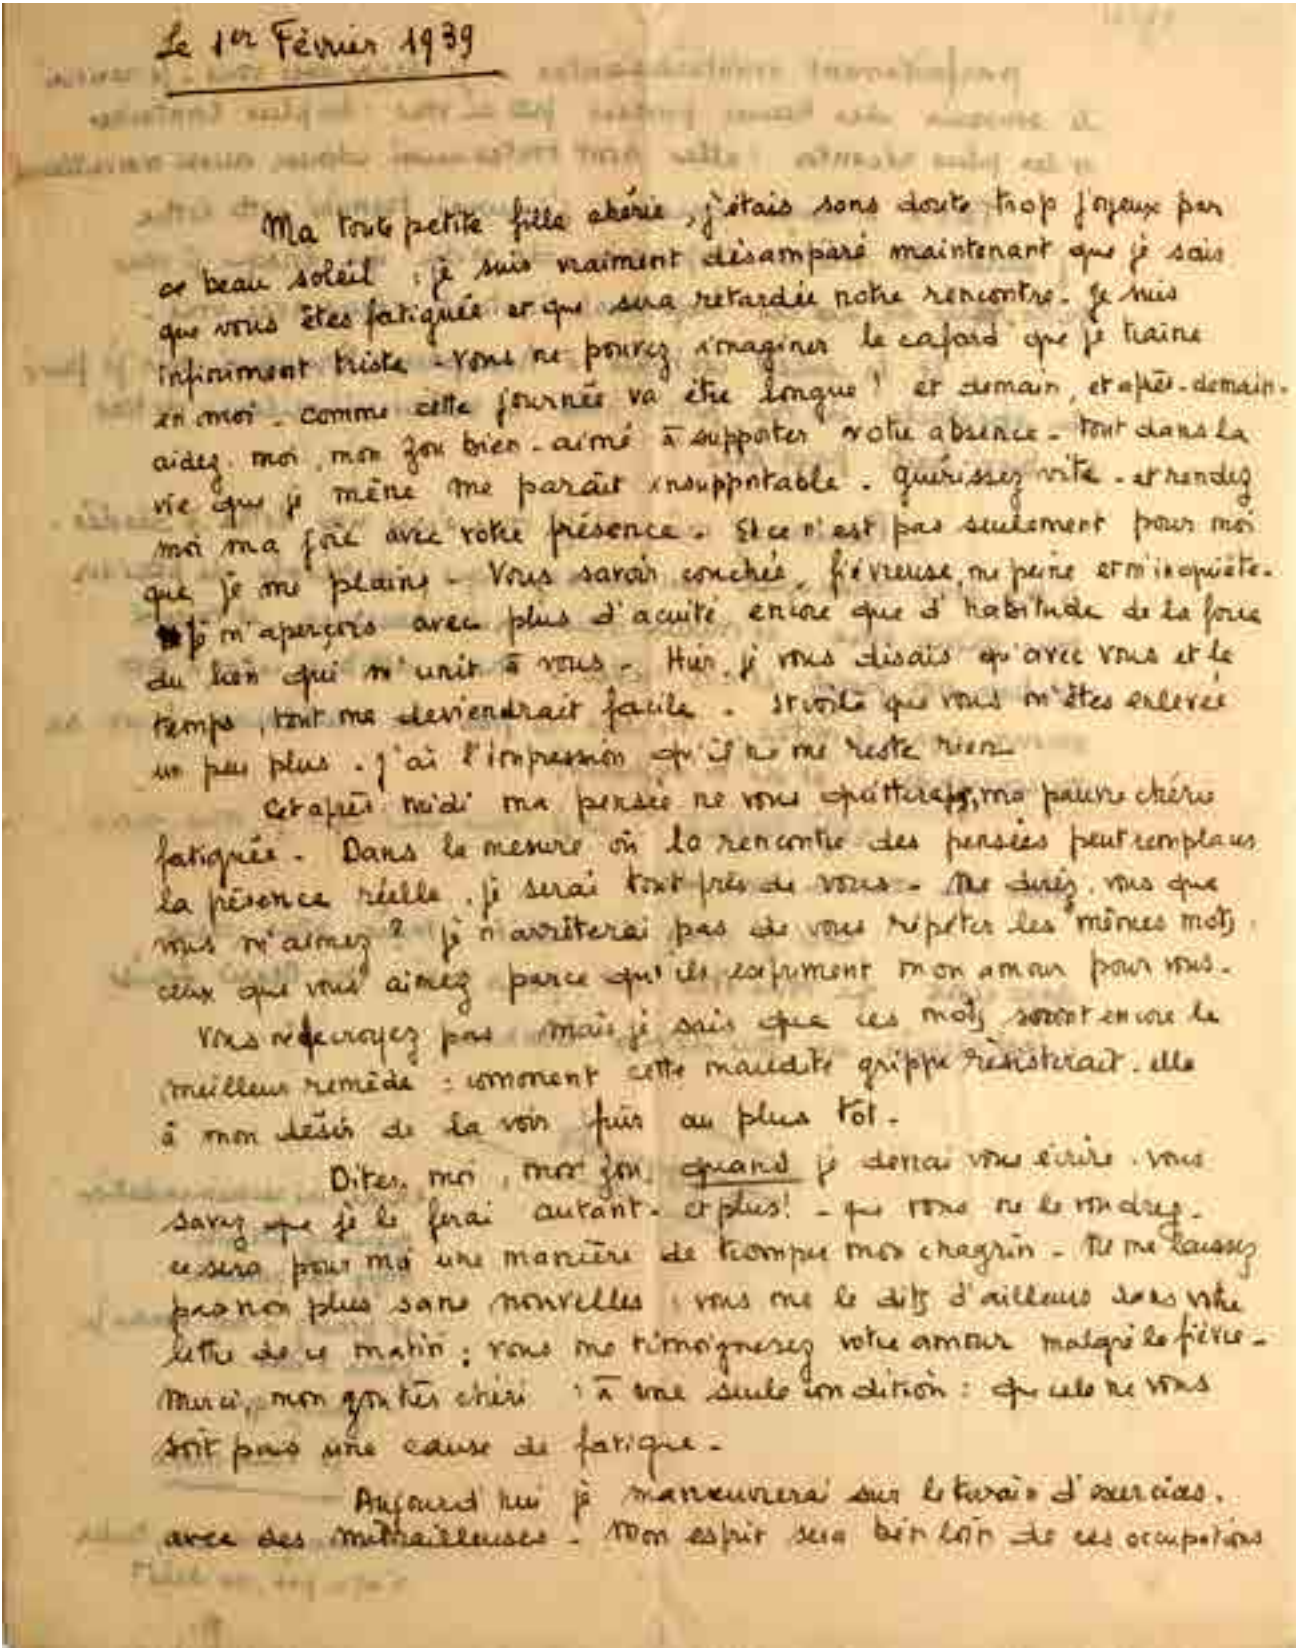 Le 1er Février 1939
Ma toute petite fille chérie, j'étais sans doute trop joyeux par
ce beau soleil : je suis vraiment désamparé maintenant que je sais
que vous êtes fatiguée et que sera retardée notre rencontre. Je suis
infiniment triste - vous ne pouvez imaginer le cafard que je traîne
en moi. comme cette journée va être longue ! et demain, et après-demain.
aidez-moi, mon zou bien-aimé à supporter votre absence - tout dans la
vie que je mène me paraît insupportable. Guérissez vite - et rendez
moi ma joie avec votre présence. Et ce n'est pas seulement pour moi
que je me plains - Vous savoir couchée, fiévreuse, me peine et m'inquiète.
je m'aperçois avec plus d'acuité encore que d'habitude de la force
du lien qui m'unit à vous - Hier, je vous disais qu'avec vous et le
temps, tout me deviendrait facile. Et voilà que vous m'êtes enlevée
un peu plus. j'ai l'impression qu'il ne me reste rien
Cet après-midi ma pensée ne vous quittera pas, ma pauvre chérie
fatiguée. Dans la mesure où la rencontre des pensées peut remplacer
la présence réelle, je serai tout près de vous - Me direz-vous que
vous m'aimez ? je n'arrêterai pas de vous répéter les mêmes mots
ceux que vous aimez parce qu'ils expriment mon amour pour vous.
Vous ne le croyez pas mais je sais que ces mots seront encore le
meilleur remède : comment cette maudite grippe résisterait-elle
à mon désir de la voir fuir au plus tôt.
Dites-moi, mon zou, quand je devrai vous écrire. vous
savez que je le ferai autant - et plus ! - que vous ne le voudrez.
ce sera pour moi une manière de tromper mon chagrin - Ne me laissez
pas non plus sans nouvelles : vous me le dites d'ailleurs dans votre
lettre de ce matin : vous me témoignerez votre amour malgré la fièvre -
Merci, mon zou très chéri : à une seule condition : que cela ne vous
soit pas une cause de fatigue -
Aujourd'hui je manœuvrerai sur le terrain d'exercices.
avec des mitrailleuses - Mon esprit sera bien loin de ces occupations